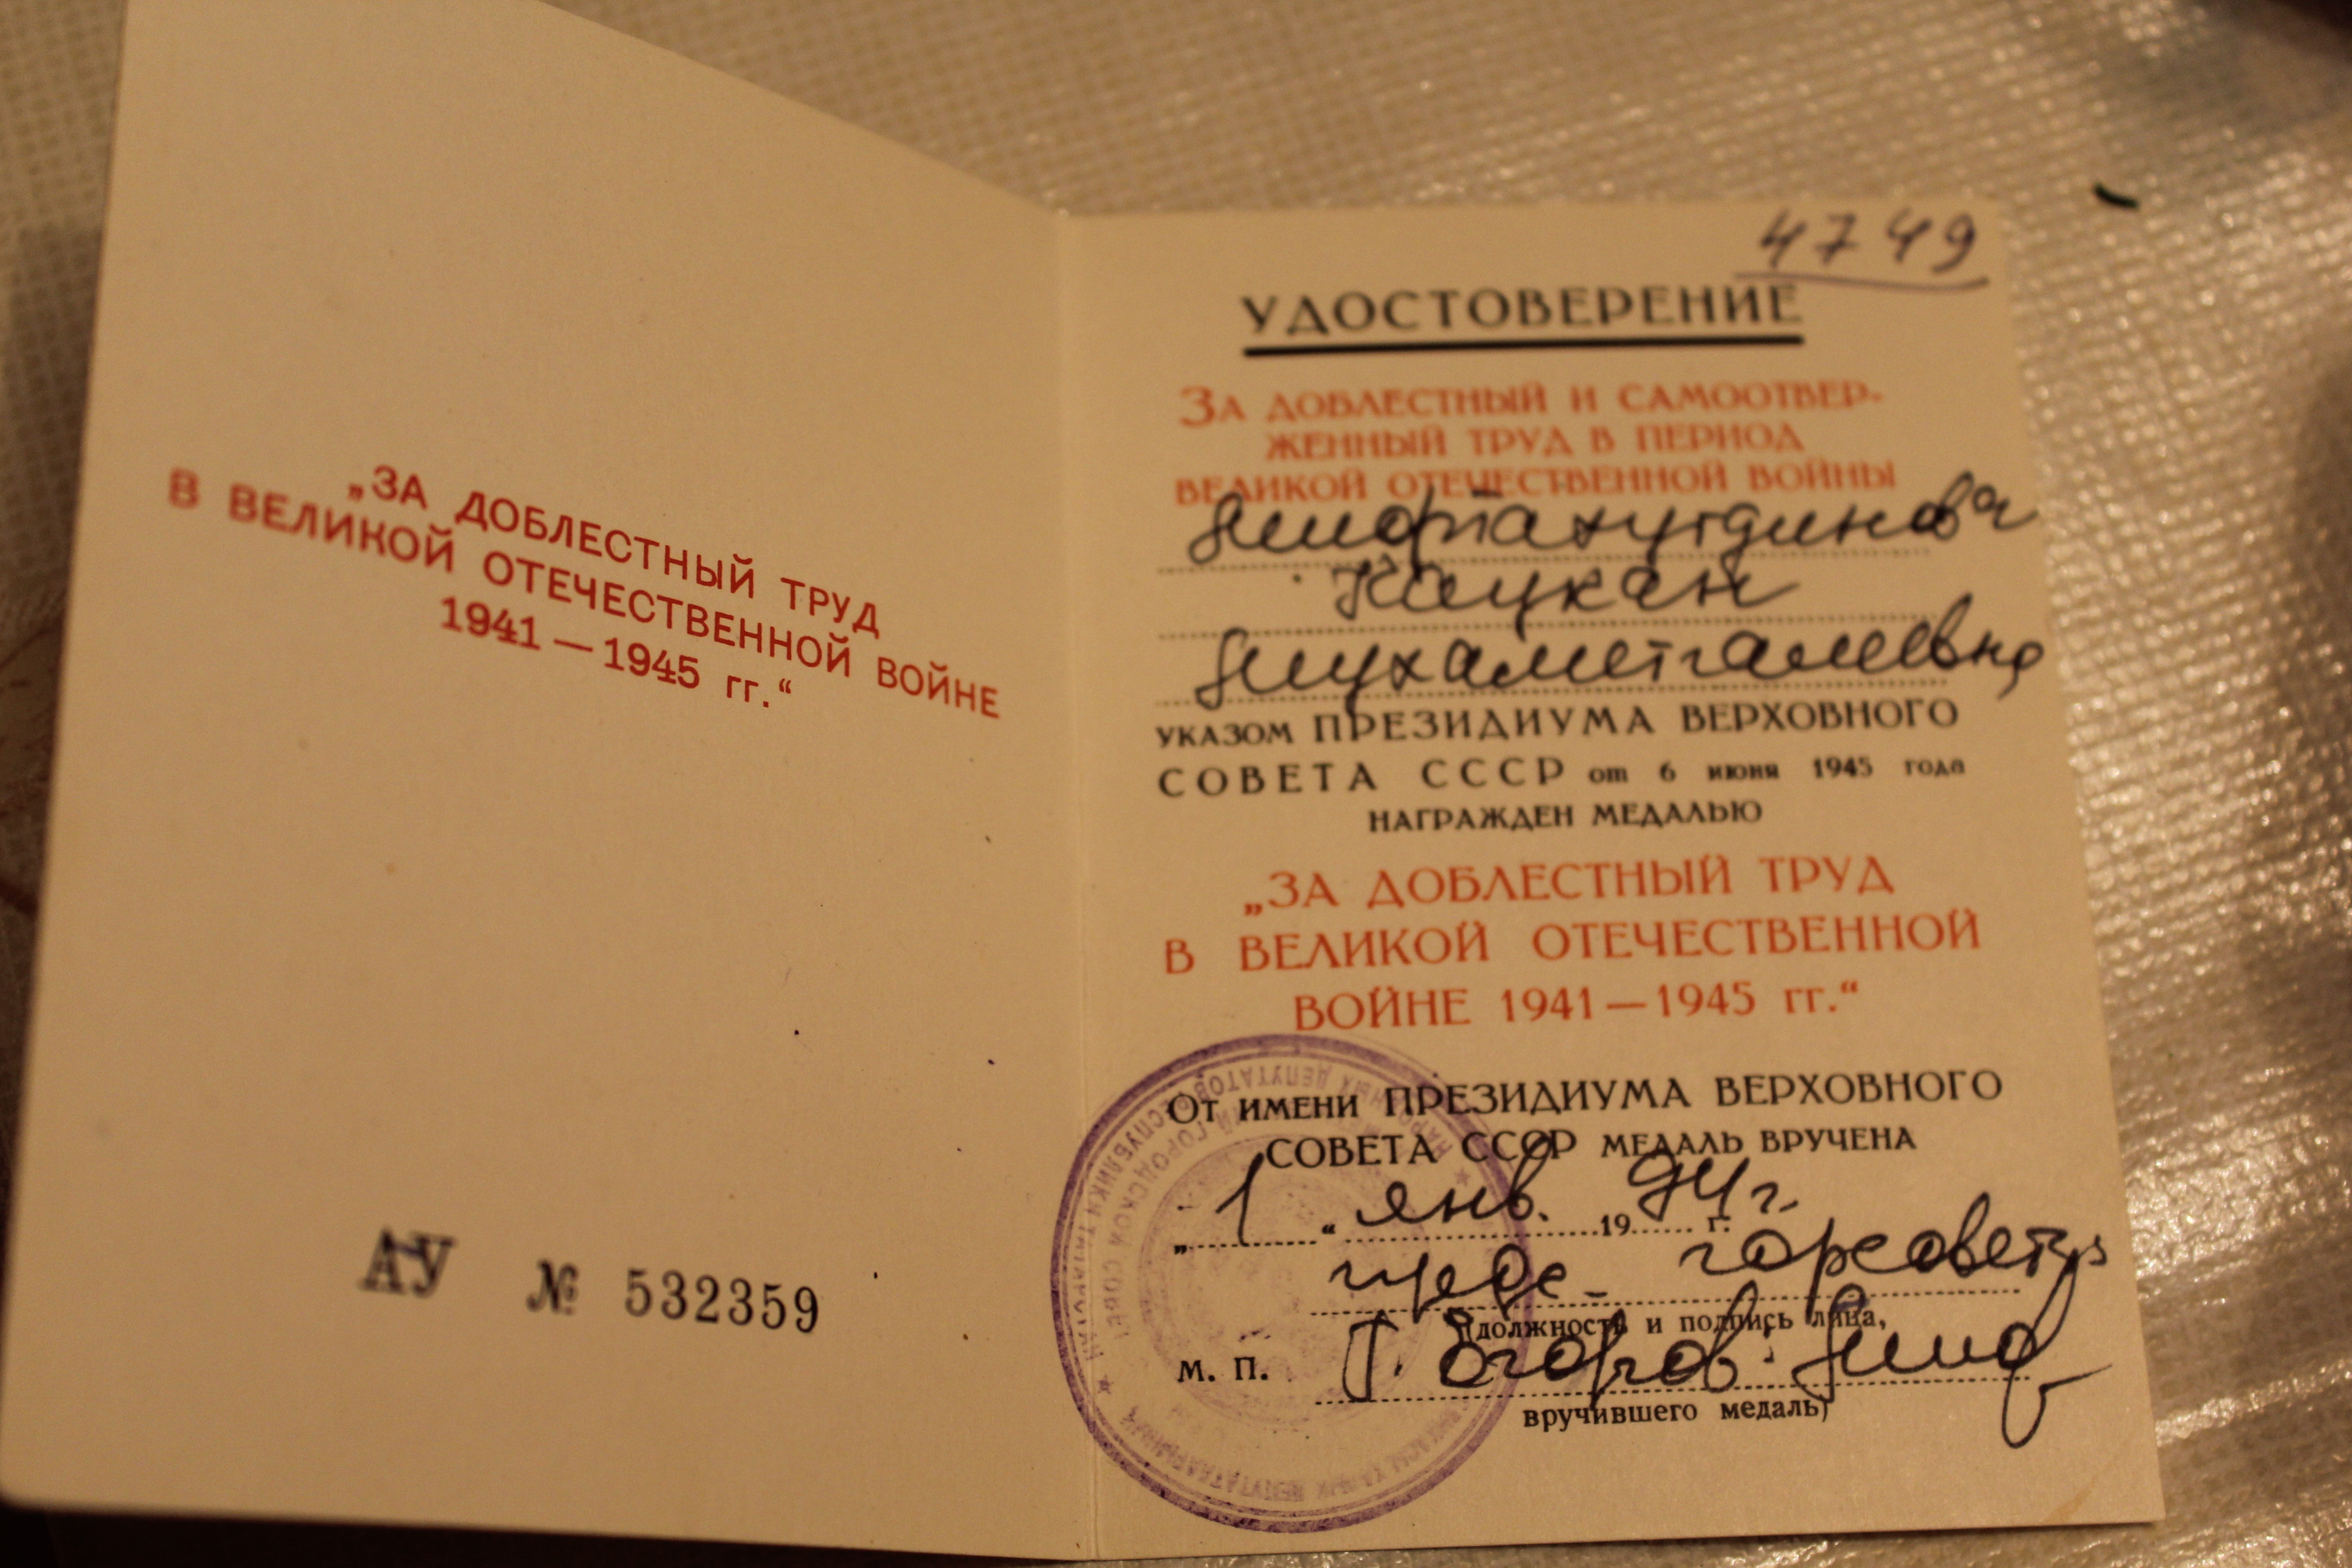 „ЗА ДОБЛЕСТНЫЙ ТРУД
В ВЕЛИКОЙ ОТЕЧЕСТВЕННОЙ ВОЙНЕ
1941—1945 гг.“
АУ № 532359
4749
УДОСТОВЕРЕНИЕ
ЗА ДОБЛЕСТНЫЙ И САМООТВЕР-
ЖЕННЫЙ ТРУД В ПЕРИОД
ВЕЛИКОЙ ОТЕЧЕСТВЕННОЙ ВОЙНЫ
Мифтахутдинова
Каукан
Мухаметгалеевна
УКАЗОМ ПРЕЗИДИУМА ВЕРХОВНОГО
СОВЕТА СССР от 6 июня 1945 года
НАГРАЖДЕН МЕДАЛЬЮ
„ЗА ДОБЛЕСТНЫЙ ТРУД
В ВЕЛИКОЙ ОТЕЧЕСТВЕННОЙ
ВОЙНЕ 1941—1945 гг.“
ОТ ИМЕНИ ПРЕЗИДИУМА ВЕРХОВНОГО
СОВЕТА СССР МЕДАЛЬ ВРУЧЕНА
„1“ янв. 1994 г. г.
пред. горсовета
(должность и подпись лица,
М. П. Егоров
вручившего медаль)
НАРОДНЫХ ДЕПУТАТОВ РЕСПУБЛИКИ ТАТАРСТАН
ГОРОДСКОЙ СОВЕТ